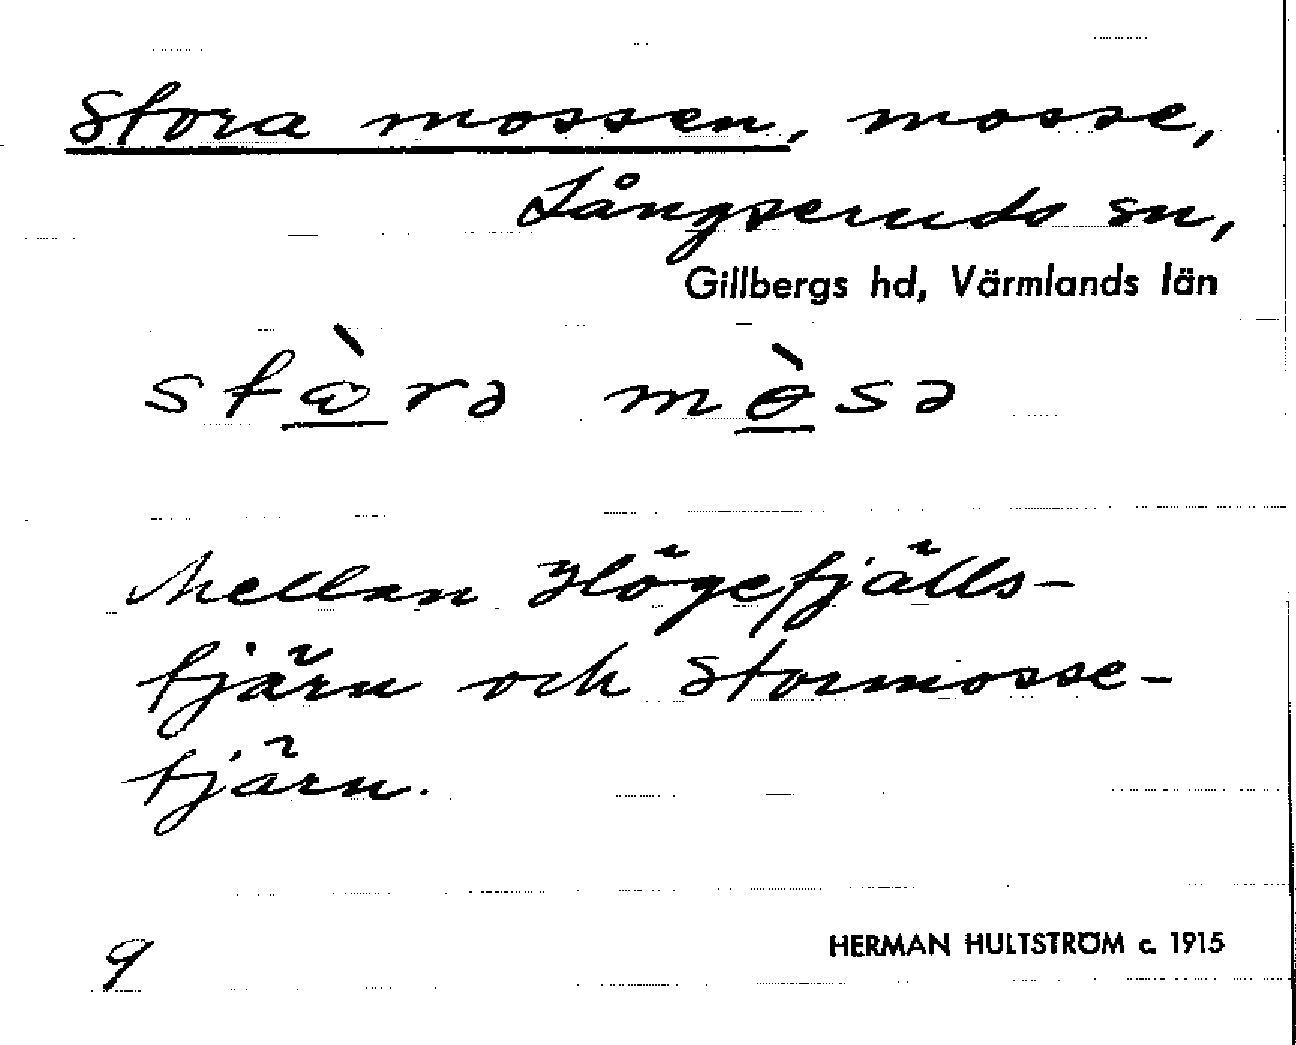 Stora mossen, mosse,
Långseruds sn,
Gillbergs hd, Värmlands län
stὼrə mɵ̀sə
Mellan Högefjälls-
tjärn och Stormosse-
tjärn.
9
HERMAN HULTSTRÖM c. 1915